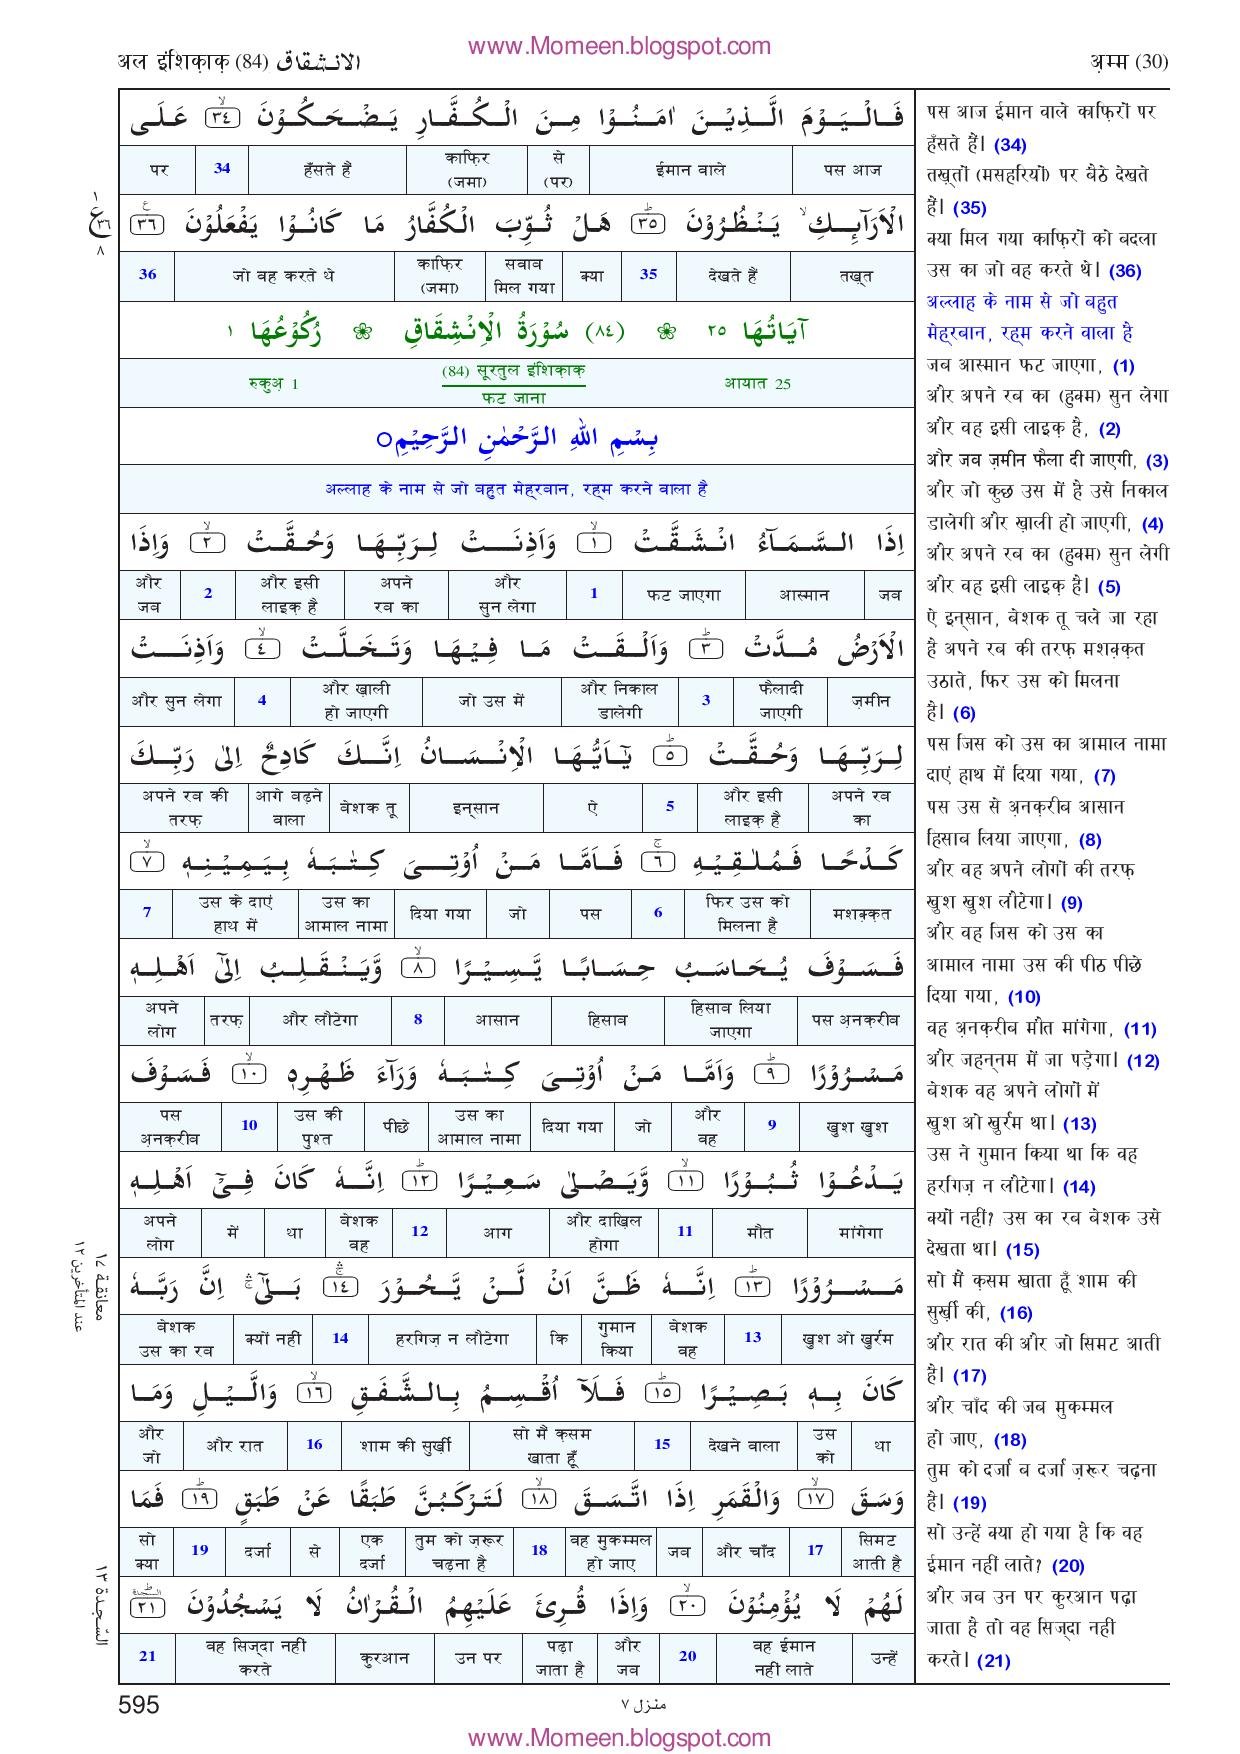 www.Momeen.blogspot.com
अल इंशिक़ाक़ (84) الانشقاق
अ़म्म (30)
فَالْيَوْمَ الَّذِيْنَ اٰمَنُوْا مِنَ الْكُفَّارِ يَضْحَكُوْنَ ۙ﴿٣٤﴾ عَلَى
पस आज ईमान वाले से (पर) काफ़िर (जमा) हँसते हैं 34 पर
الْاَرَآئِكِ ۙ يَنْظُرُوْنَ ؕ﴿٣٥﴾ هَلْ ثُوِّبَ الْكُفَّارُ مَا كَانُوْا يَفْعَلُوْنَ ﴿٣٦﴾
तख़्त देखते हैं 35 क्या सवाब मिल गया काफ़िर (जमा) जो वह करते थे 36
١ ع ٣٦ ٨
آيَاتُهَا ٢٥ ❀ (٨٤) سُوْرَةُ الْاِنْشِقَاقِ ❀ رُكُوْعُهَا ١
रुकुअ़ 1 (84) सूरतुल इंशिक़ाक़ आयात 25
फट जाना
بِسْمِ اللهِ الرَّحْمٰنِ الرَّحِيْمِ○
अल्लाह के नाम से जो बहुत मेहरबान, रहम करने वाला है
اِذَا السَّمَآءُ انْشَقَّتْ ۙ﴿١﴾ وَاَذِنَتْ لِرَبِّهَا وَحُقَّتْ ۙ﴿٢﴾ وَاِذَا
जब आस्मान फट जाएगा 1 और सुन लेगा अपने रब का और इसी लाइक़ है 2 और जब
الْاَرْضُ مُدَّتْ ؕ﴿٣﴾ وَاَلْقَتْ مَا فِيْهَا وَتَخَلَّتْ ۙ﴿٤﴾ وَاَذِنَتْ
ज़मीन फैलादी जाएगी 3 और निकाल डालेगी जो उस में और ख़ाली हो जाएगी 4 और सुन लेगा
لِرَبِّهَا وَحُقَّتْ ؕ﴿٥﴾ يٰٓاَيُّهَا الْاِنْسَانُ اِنَّكَ كَادِحٌ اِلٰى رَبِّكَ
अपने रब का और इसी लाइक़ है 5 ऐ इन्सान बेशक तू आगे बढ़ने वाला अपने रब की तरफ़
كَدْحًا فَمُلٰقِيْهِ ۚ﴿٦﴾ فَاَمَّا مَنْ اُوْتِىَ كِتٰبَهٗ بِيَمِيْنِهٖ ۙ﴿٧﴾
मशक़्क़त फिर उस को मिलना है 6 पस जो दिया गया उस का आमाल नामा उस के दाएं हाथ में 7
فَسَوْفَ يُحَاسَبُ حِسَابًا يَّسِيْرًا ۙ﴿٨﴾ وَّيَنْقَلِبُ اِلٰٓى اَهْلِهٖ
पस अ़नक़रीब हिसाब लिया जाएगा हिसाब आसान 8 और लौटेगा तरफ़ अपने लोग
مَسْرُوْرًا ؕ﴿٩﴾ وَاَمَّا مَنْ اُوْتِىَ كِتٰبَهٗ وَرَآءَ ظَهْرِهٖ ۙ﴿١٠﴾ فَسَوْفَ
खुश खुश 9 और वह जो दिया गया उस का आमाल नामा पीछे उस की पुश्त 10 पस अ़नक़रीब
يَدْعُوْا ثُبُوْرًا ۙ﴿١١﴾ وَّيَصْلٰى سَعِيْرًا ؕ﴿١٢﴾ اِنَّهٗ كَانَ فِىْٓ اَهْلِهٖ
मांगेगा मौत 11 और दाख़िल होगा आग 12 बेशक वह था में अपने लोग
مَسْرُوْرًا ؕ﴿١٣﴾ اِنَّهٗ ظَنَّ اَنْ لَّنْ يَّحُوْرَ ۛۚ﴿١٤﴾ بَلٰٓى ۛۚ اِنَّ رَبَّهٗ
खुश ओ खुर्रम 13 बेशक वह गुमान किया कि हरगिज़ न लौटेगा 14 क्यों नहीं बेशक उस का रब
معانقة ١٧
عند المتأخرين ١٢
كَانَ بِهٖ بَصِيْرًا ؕ﴿١٥﴾ فَلَآ اُقْسِمُ بِالشَّفَقِ ۙ﴿١٦﴾ وَالَّيْلِ وَمَا
था उस को देखने वाला 15 सो मैं क़सम खाता हूँ शाम की सुर्ख़ी 16 और रात और जो
وَسَقَ ۙ﴿١٧﴾ وَالْقَمَرِ اِذَا اتَّسَقَ ۙ﴿١٨﴾ لَتَرْكَبُنَّ طَبَقًا عَنْ طَبَقٍ ؕ﴿١٩﴾ فَمَا
सिमट आती है 17 और चाँद जब वह मुकम्मल हो जाए 18 तुम को ज़रूर चढ़ना है एक दर्जा से दर्जा 19 सो क्या
لَهُمْ لَا يُؤْمِنُوْنَ ۙ﴿٢٠﴾ وَاِذَا قُرِئَ عَلَيْهِمُ الْقُرْاٰنُ لَا يَسْجُدُوْنَ ؕ﴿٢١﴾
उन्हें वह ईमान नहीं लाते 20 और जब पढ़ा जाता है उन पर कुरआन वह सिज्दा नहीं करते 21
السّجدة ١٣
पस आज ईमान वाले काफ़िरों पर
हँसते हैं। (34)
तख़्तों (मसहरियों) पर बैठे देखते
हैं। (35)
क्या मिल गया काफ़िरों को बदला
उस का जो वह करते थे। (36)
अल्लाह के नाम से जो बहुत
मेहरबान, रहम करने वाला है
जब आस्मान फट जाएगा, (1)
और अपने रब का (हुक्म) सुन लेगा
और वह इसी लाइक़ है, (2)
और जब ज़मीन फैला दी जाएगी, (3)
और जो कुछ उस में है उसे निकाल
डालेगी और ख़ाली हो जाएगी, (4)
और अपने रब का (हुक्म) सुन लेगी
और वह इसी लाइक़ है। (5)
ऐ इन्सान, बेशक तू चले जा रहा
है अपने रब की तरफ़ मशक़्क़त
उठाते, फिर उस को मिलना
है। (6)
पस जिस को उस का आमाल नामा
दाएं हाथ में दिया गया, (7)
पस उस से अ़नक़रीब आसान
हिसाब लिया जाएगा, (8)
और वह अपने लोगों की तरफ़
खुश खुश लौटेगा। (9)
और वह जिस को उस का
आमाल नामा उस की पीठ पीछे
दिया गया, (10)
वह अ़नक़रीब मौत मांगेगा, (11)
और जहन्नम में जा पड़ेगा। (12)
बेशक वह अपने लोगों में
खुश ओ खुर्रम था। (13)
उस ने गुमान किया था कि वह
हरगिज़ न लौटेगा। (14)
क्यों नहीं? उस का रब बेशक उसे
देखता था। (15)
सो मैं क़सम खाता हूँ शाम की
सुर्ख़ी की, (16)
और रात की और जो सिमट आती
है। (17)
और चाँद की जब मुकम्मल
हो जाए, (18)
तुम को दर्जा ब दर्जा ज़रूर चढ़ना
है। (19)
सो उन्हें क्या हो गया है कि वह
ईमान नहीं लाते? (20)
और जब उन पर कुरआन पढ़ा
जाता है तो वह सिज्दा नहीं
करते। (21)
595
منزل ٧
www.Momeen.blogspot.com